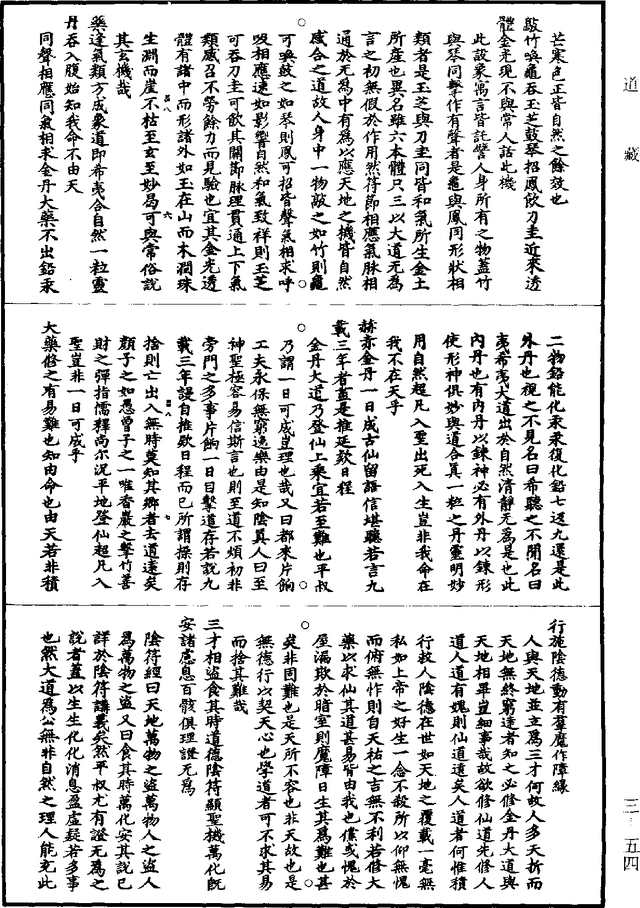 芒寒色正皆自然之餘效也
敲竹喚龜吞玉芝鼓琴招鳳飲刀圭近來透
體金光現不與常人話此機
此設象寓言皆託譬人身所有之物蓋竹
與琴同擊作有聲者是龜與鳳同形狀相
類者是玉芝與刀圭同皆和氣所生金土
所産也異名雖六本體只三以大道无爲
言之初無假於作用然符節相應氣脉相
通於无爲中有爲以應天地之機皆自然
感合之道故人身中一物敲之如竹則龜
可喚鼓之如琴則鳳可招皆聲氣相求呼
吸相應速如影響自然和氣致祥則玉芝
可吞刀圭可飲其關節脉理貫通上下氣
類感召不勞餘力而見驗也宜其金光透
體有諸中而形諸外如玉在山而木潤珠
生淵而崖不枯至玄至妙爲可與常俗說
其玄機哉
藥逢氣類方成象道即希夷合自然一粒靈
丹吞入腹始知我命不由天
同聲相應同氣相求金丹大藥不出鉛汞
二物鉛能化汞汞復化鉛七返九還是此
外丹也視之不見名曰希聽之不聞名曰
夷希夷大道出於自然清靜无爲是也此
內丹也有內丹以鍊神必有外丹以鍊形
使形神俱妙與道合眞一粒之丹靈明妙
用自然超凡入聖出死入生豈非我命在
我不在天乎
赫赤金丹一日成古仙留語信堪聽若言九
載三年者盡是推延欵日程
金丹大道乃登仙上乘宜若至難也平叔
乃謂一日可成豈理也哉又曰都來片餉
工夫永保無窮逸樂由是知陰眞人曰至
神聖極容易信斯言也則至道不煩初非
旁門之多事片餉一日目擊道存若說九
載三年謾自推欵日程而已所謂操則存
捨則亡出入無時莫知其鄉者去道遠矣
顏子之如愚曾子之一唯香嚴之擊竹善
財之彈指儒釋尚尔況平地登仙超凡入
聖豈非一日可成乎
大藥修之有易難也知由命也由天若非積
行施陰德動有羣魔作障緣
人與天地並立爲三才何故人多天折而
天地無終窮達者知之必修金丹大道與
天地相畢豈細事哉故欲修仙道先修人
道人道有媿則仙道遠矣人道者何惟積
行救人陰德在世如天地之覆載一毫無
私如上帝之好生一念不殺所以仰無愧
而俯無怍則自天祐之吉無不利若修大
藥以求仙其道甚易皆由我也儻或愧於
屋漏欺於暗室則魔障日生其爲難也甚
矣非固難也是天所不容也非天故也是
無德行以契天心也學道者可不求其易
而捨其難哉
三才相盜食其時道德陰符顯聖機萬化既
安諸慮息百骸俱理證无爲
陰符經曰天地萬物之盜萬物人之盜人
爲萬物之盜又曰食其時萬化安其說已
詳於陰符講義矣然平叔尤有證无爲之
說者蓋以生生化化消息盈虛疑若多事
也然大道爲公無非自然之理人能充此
道藏
三·五四